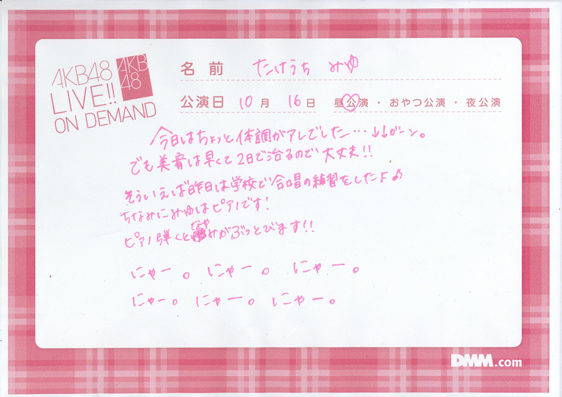 AKB48
LIVE!!
ON DEMAND
AKB
48
名前 たけうち みゆ
公演日 10月 16日 昼公演・おやつ公演・夜公演
今日はちょっと体調がアレでした…↓↓ガーン。
でも美宥は早くて2日で治るので大丈夫!!
そういえば昨日は学校で合唱の練習をしたよ♪
ちなみにみゆはピアノです!
ピアノ弾くとなやみがぶっとびます!!
にゃー。にゃー。にゃー。
にゃー。にゃー。にゃー。
DMM.com